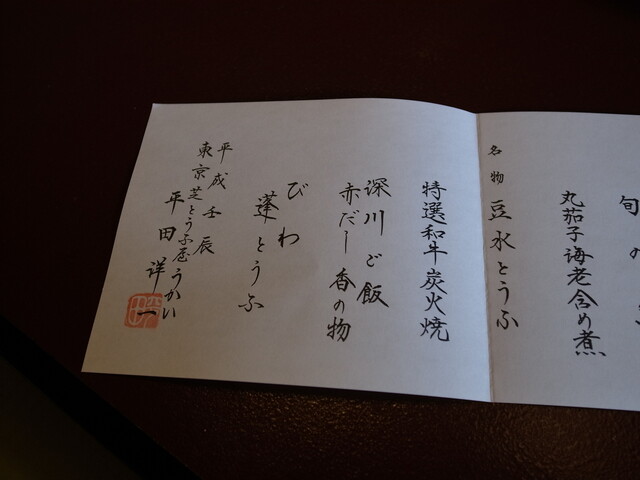 旬の
丸茄子海老含め煮
名物 豆水とうふ
特選和牛炭火焼
深川ご飯
赤だし 香の物
びわ
蓬とうふ
平成壬辰
東京芝とうふ屋うかい
平田祥一